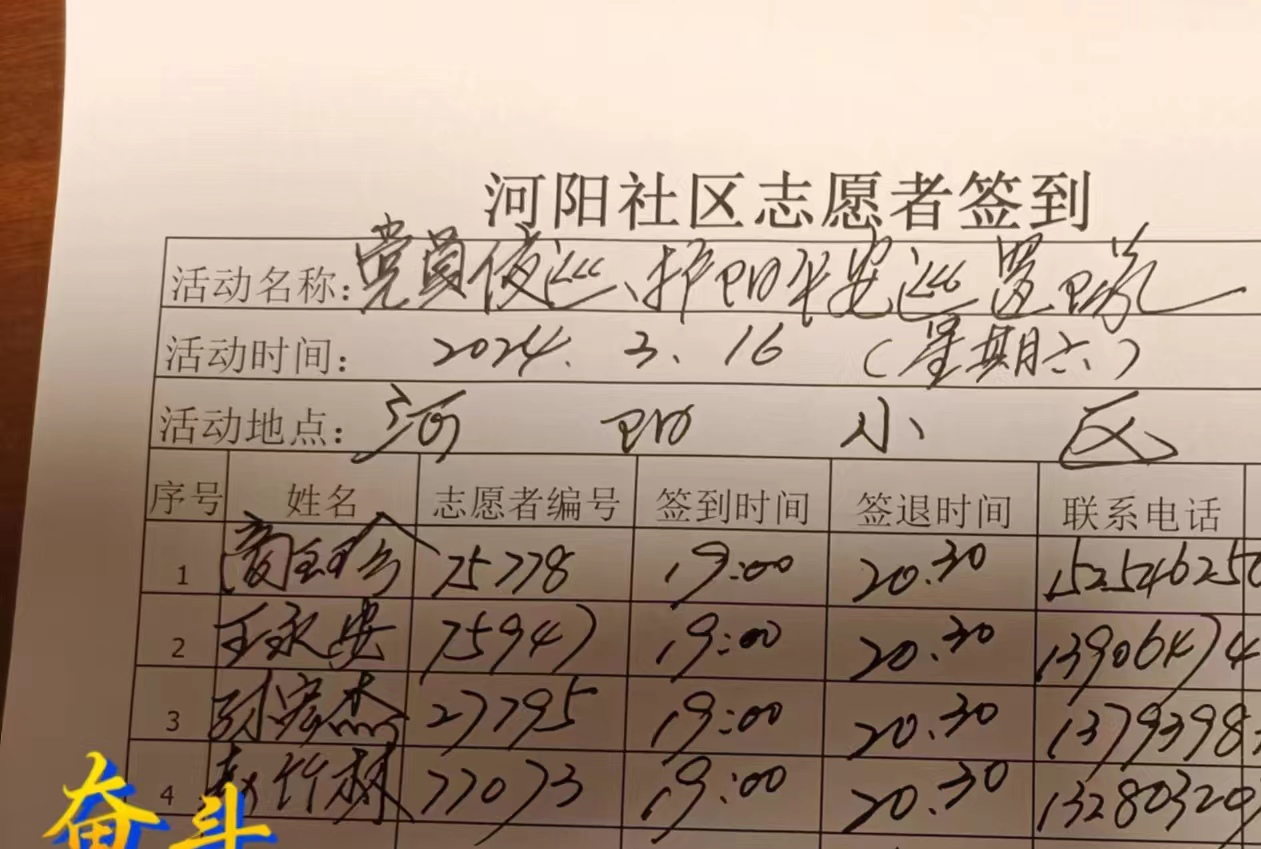 河阳社区志愿者签到
活动名称:党员夜巡、护卫平安巡逻
活动时间: 2024. 3. 16 (星期六)
活动地点: 河阳小区
序号 姓名 志愿者编号 签到时间 签退时间 联系电话
1 75778 19:00 20.30 152546250
2 王永安 75947 19:00 20.30 13906474
3 宏杰 27795 19:00 20.30 1379398
4 赵竹林 77073 19:00 20.30 13280320
奋斗